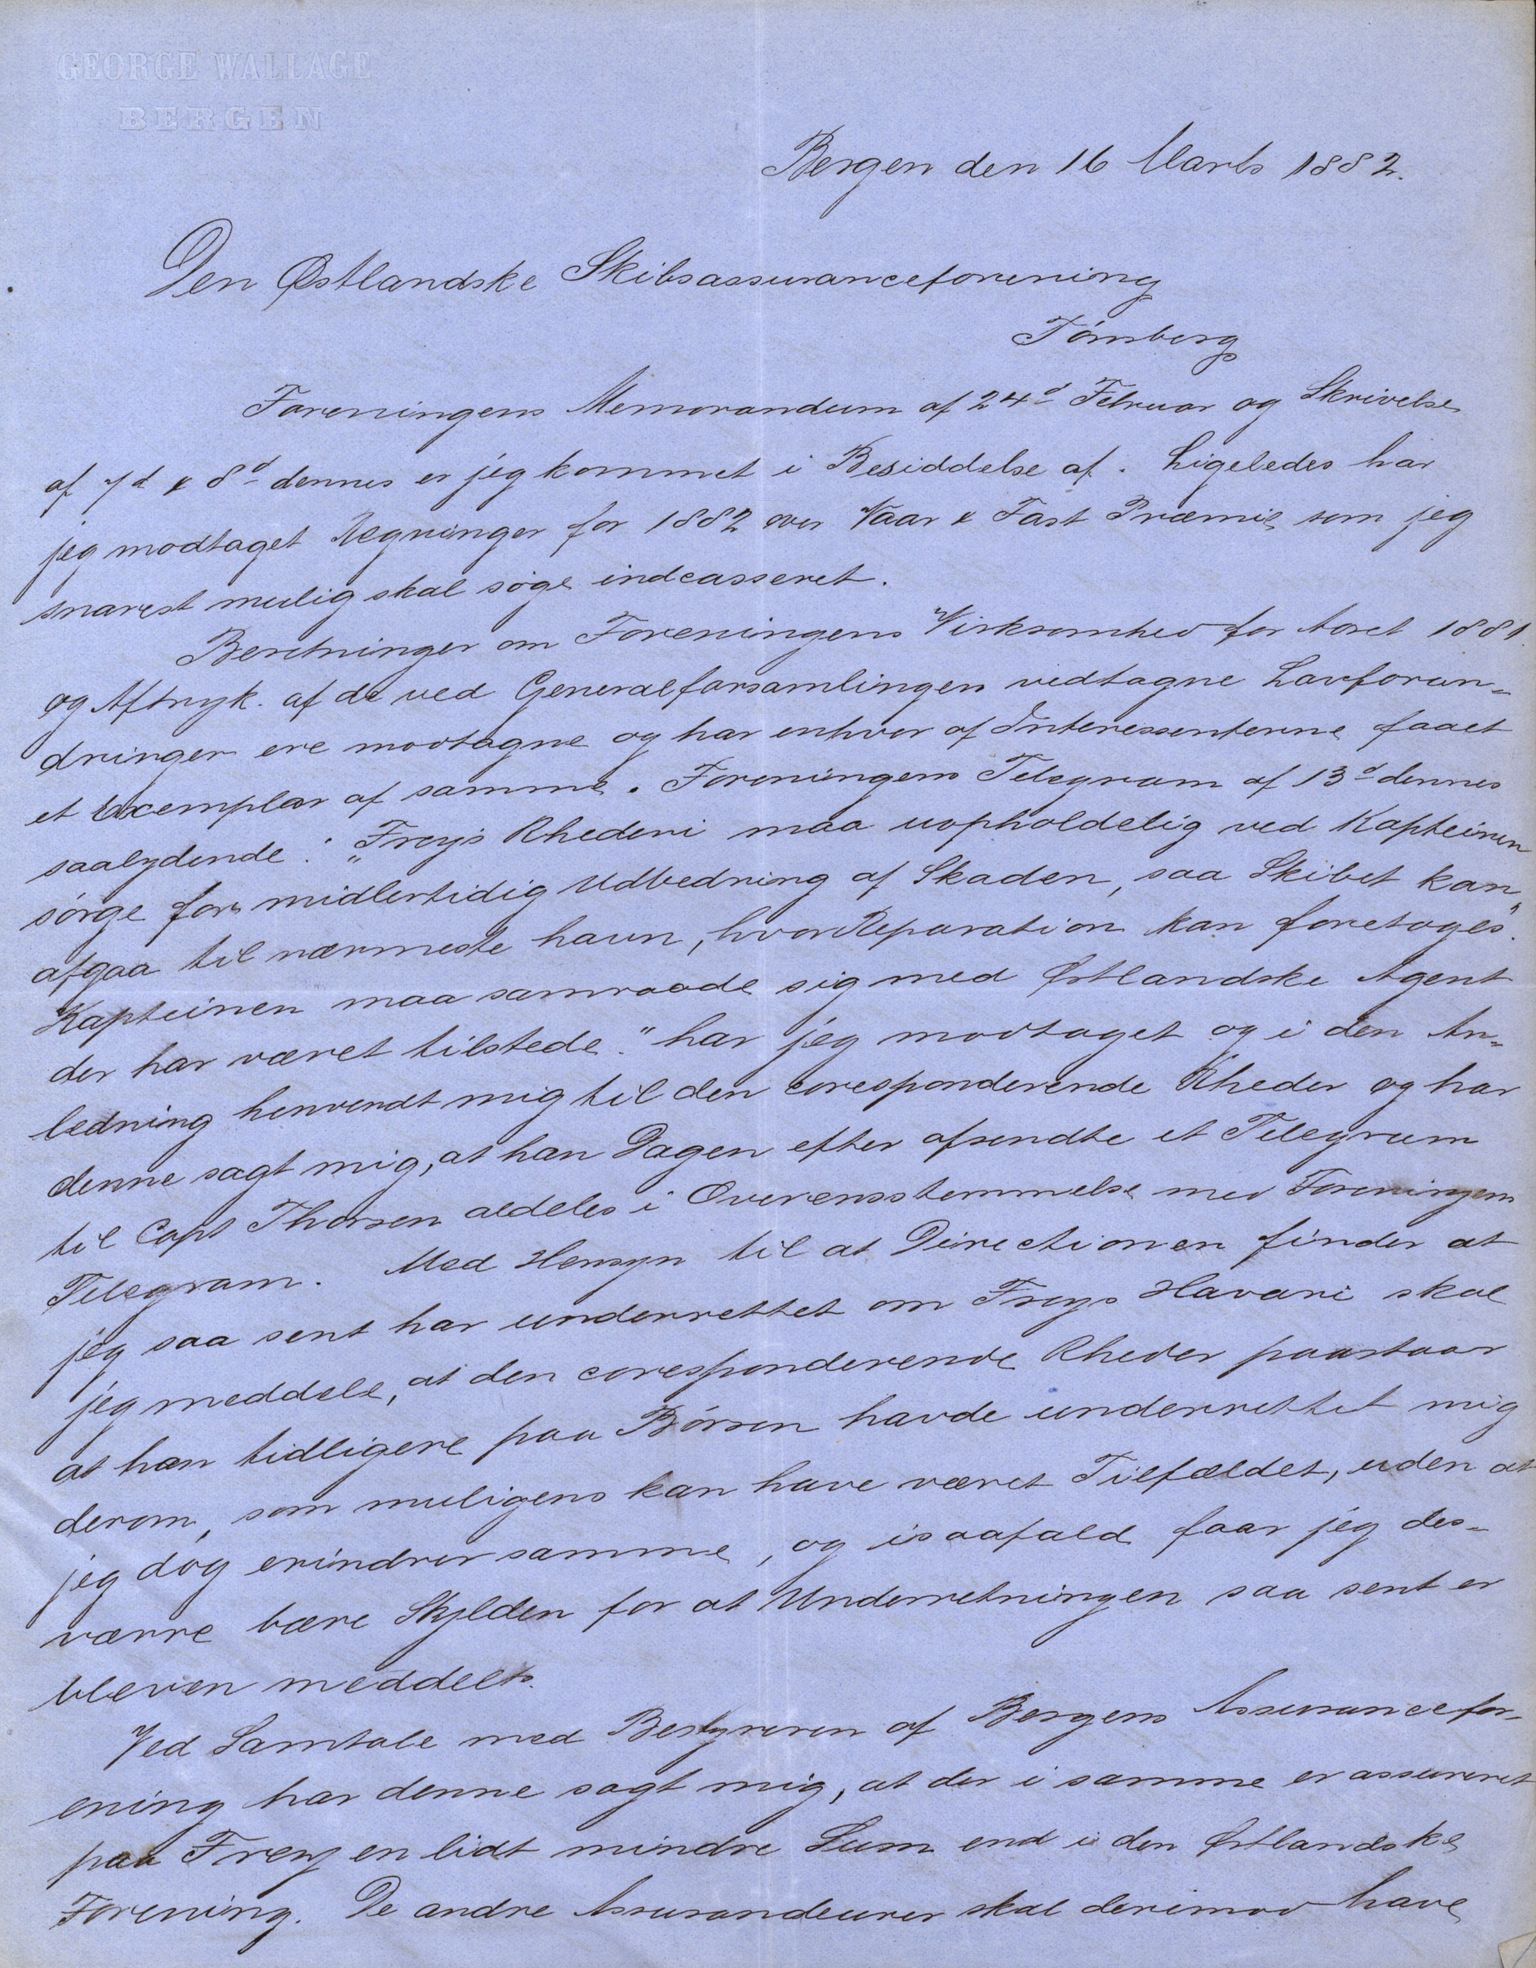 GEORGE WALLAGE
BERGEN
Bergen den 16 Marts 1882.
Den Østlandske Skibsassuranceforening
Tønsberg
Foreningens Memorandum af 24d Februar og Skrivelse
af 7d & 8d dennes er jeg kommet i Besiddelse af. Ligeledes har
jeg modtaget Regninger for 1882 over Vaar & Fast Præmie som jeg
snarest mulig skal søge indcasseret.
Beretninger om Foreningens Virksomhed for Aaret 1881
og Aftryk af de ved Generalforsamlingen vedtagne Lovforan-
dringer ere modtagne og har enhver af Interessenterne faaet
et Exemplar af samme. Foreningens Telegram af 13d dennes
saalydende: "Freys Rhederi maa uopholdelig ved Kapteinen
sørge for midlertidig Udbedring af Skaden, saa Skibet kan
afgaa til nærmeste havn, hvor Reparation kan foretages".
Kapteinen maa samraade sig med Østlandske Agent
der har været tilstede." har jeg modtaget og i den An-
ledning henvendt mig til den coresponderende Rheder og har
denne sagt mig, at han Dagen efter afsendte et Telegram
til Capt Thorsen aldeles i Overensstemmelse med Foreningens
Telegram. Med Hensyn til at Deirectionen finder at
jeg saa sent har underrettet om Freys Havari skal
jeg meddele, at den coresponderende Rheder paastaar
at han tidligere paa Børsen havde underrettet mig
derom, som muligens kan have været Tilfældet, uden at
jeg dog erindrer samme, og isaafald faar jeg des-
værre bære Skylden for at Underretningen saa sent er
bleven meddelt.
Ved Samtale med Bestyreren af Bergens Assurancefor-
ening har denne sagt mig, at der i samme er assureret
paa Frey en lidt mindre Sum end i den Østlandske
Forening. De andre Assurandeurer skal derimod have